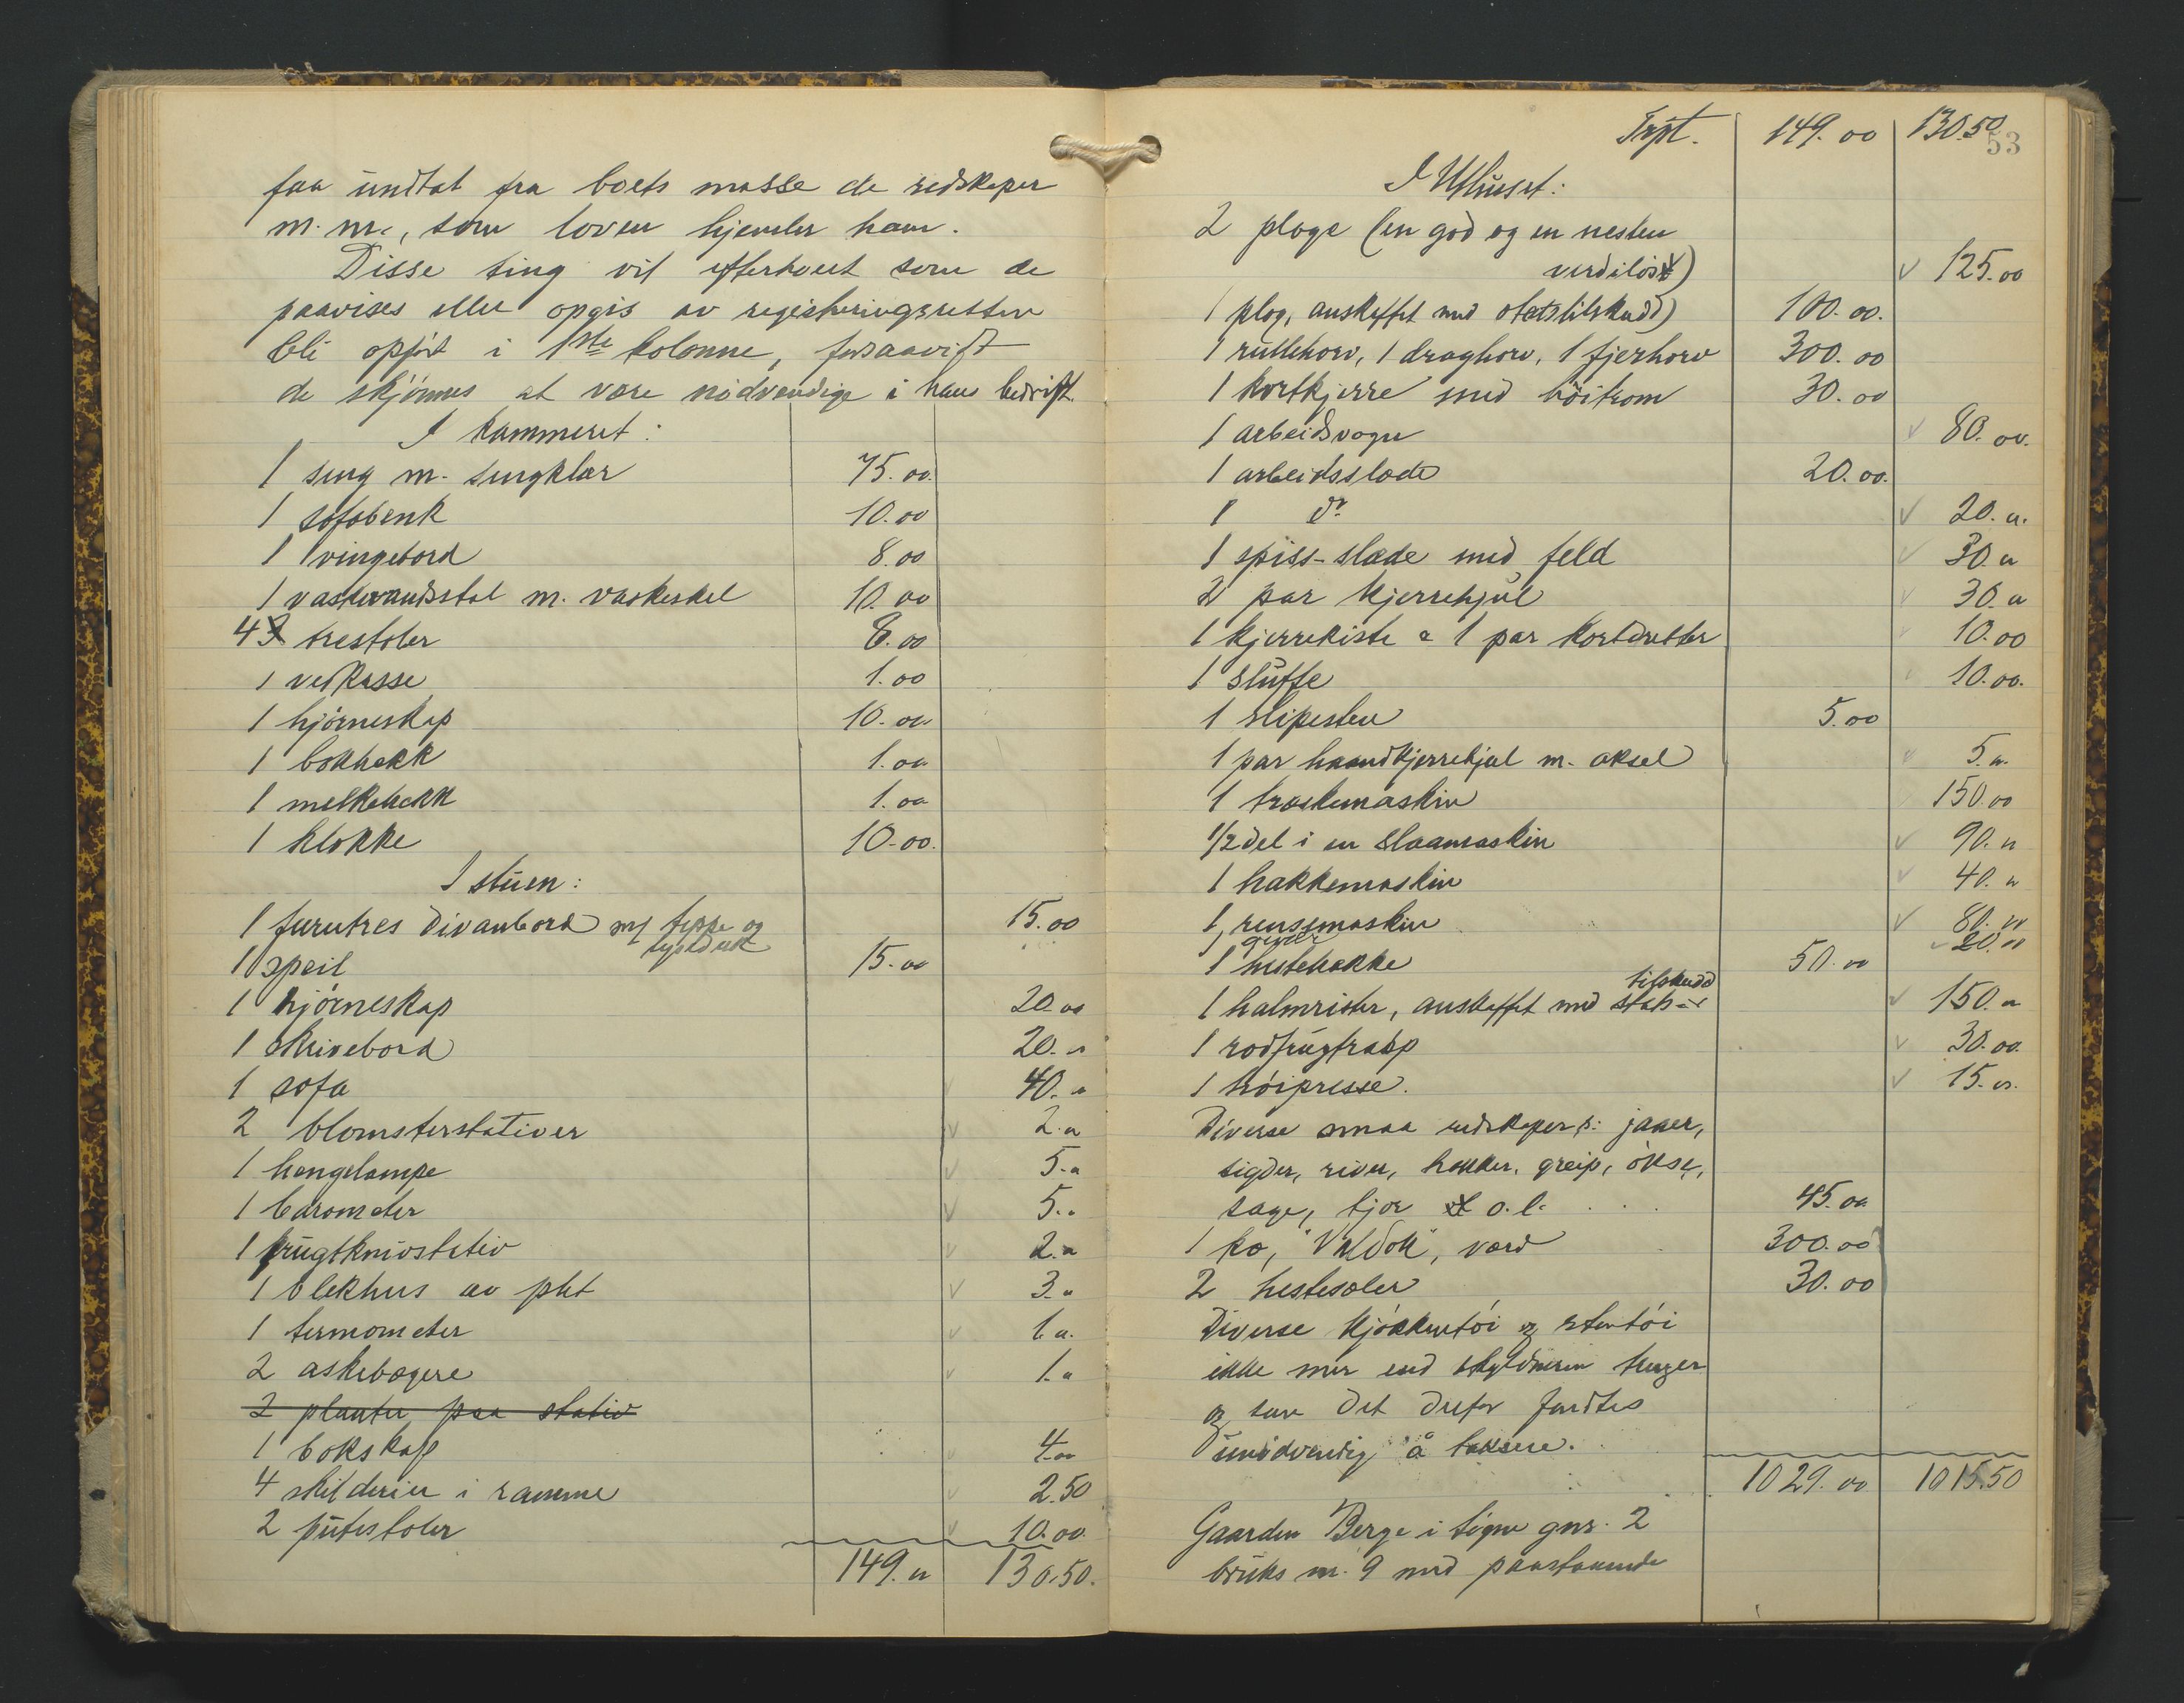 faa undtat fra boets masse de redskaper
m.m., som loven hjemler ham.
Disse ting vil efterhvert som de
paavises eller opgis av registreringsretten
bli opført i 1ste kolonne, forsaavidt
de skjønnes at være nødvendige i hans bedrift.
I kammeret:
1 seng m. sengklær 75.00
1 sofabenk 10.00
1 vingebord 8.00
1 vaskevandsstol m. vaskeskel 10.00
4 trestoler 8.00
1 vedkasse 1.00
1 hjørneskap 10.00
1 bokhekk 1.00
1 melkehekk 1.00
1 klokke 10.00.
I stuen:
1 furutres divanbord m/ teppe og 15.00
lysduk
1 speil 15.00
1 hjørneskap 20.00
1 skrivebord 20.00
1 sofa 40.00
2 blomsterstativer 2.00
1 hengelampe 5.00
1 barometer 5.00
1 frugtknivstativ 2.00
1 blekhus av plet 3.00
1 termometer 1.00
2 askebægere 1.00
2 planter paa stativ
1 bokskap 4.00
4 skilderier i ramme 2.50
2 putestoler 10.00
149.00 130.50.
Trpt. 149.00 130.50
53
I Uthuset:
2 ploge (en god og en nesten
verdiløs) 125.00
1 plog, anskaffet med statstilskudd) 100.00.
1 rulleharv, 1 dragharv, 1 fjerharv 300.00
1 kortkjerre med høitrom 30.00
1 arbeidsvogn 80.00.
1 arbeidsslæde 20.00.
1 do 20.00
1 spiss-slæde med feld 30.00
2 par kjerrehjul 30.00
1 kjerrekiste & 1 par kortdretter 10.00
1 sluffe 10.00.
1 slipesten 5.00
1 par haandkjerrehjul m. aksel 5.00
1 træskemaskin 150.00
1/2 del i en slaamaskin 90.00
1 hakkemaskin 40.00
1 rensemaskin 80.00
1 gevær 20.00
1 hestehakke 50.00
tilskudd
1 halmrister, anskaffet med stats- 150.00
1 rodfrugtrasp 30.00.
1 høipresse. 15.00.
Diverse smaa redskaper s: jaaer,
sigder, river, hakker, greip, økse,
sage, tjor o.l. 45.00
1 ko, "Valdok", verd 300.00
2 hestesæler 30.00
Diverse kjøkkentøi og stentøi
ikke mer end skyldneren trenger
og som det derfor fandtes
unødvendig å taksere.
1029.00 1015.50
Gaarden Berge i Søgne gnr. 2
bruks nr. 9 med paastaaende